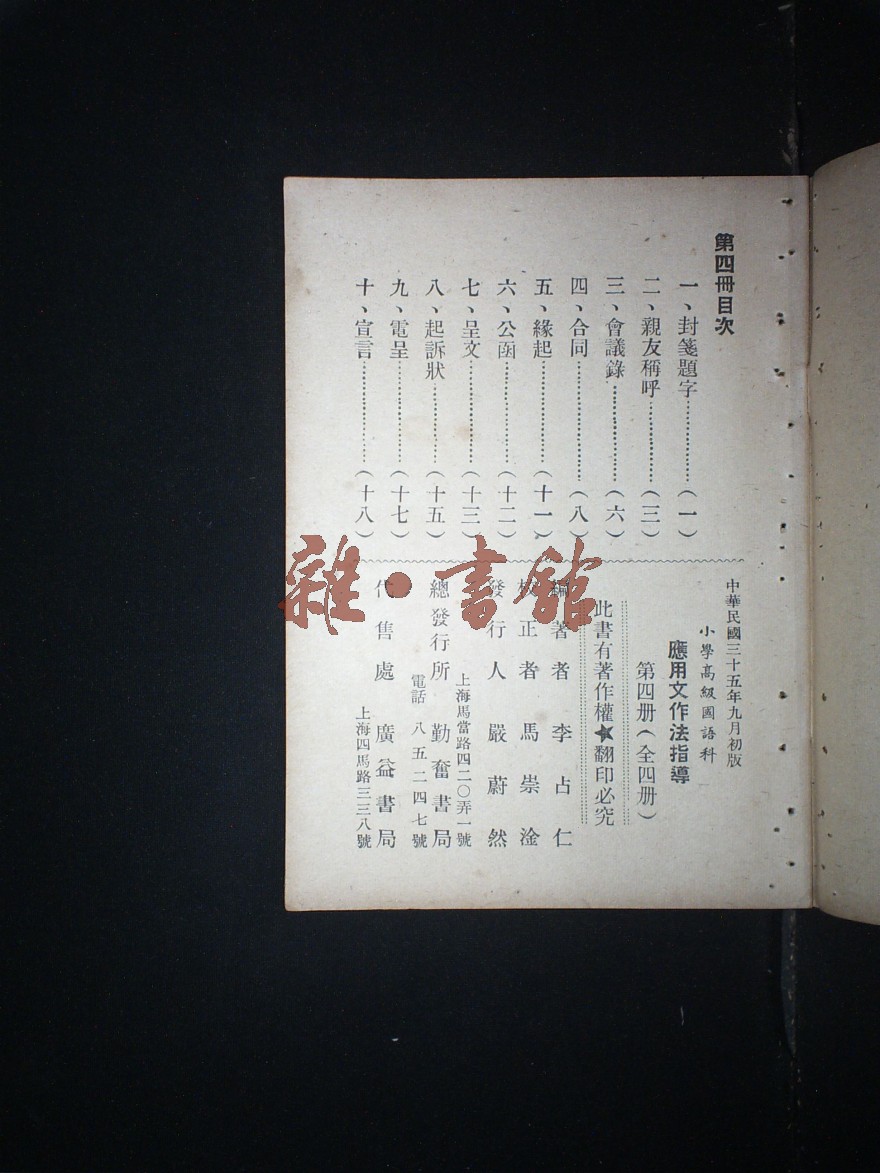 第四冊目次
一、封箋題字……………（一）
二、親友稱呼……………（三）
三、會議錄……………（六）
四、合同……………（八）
五、緣起……………（十一）
六、公函……………（十二）
七、呈文……………（十三）
八、起訴狀……………（十五）
九、電呈……………（十七）
十、宣言……………（十八）
中華民國三十五年九月初版
小學高級國語科
應用文作法指導
第四册（全四册）
此書有著作權★翻印必究
編著者 李占仁
校正者 馬崇淦
發行人 嚴蔚然
上海馬當路四二〇弄一號
總發行所 勤奮書局
電話 八五二四七號
代售處 廣益書局
上海四馬路三三八號
雜·書館